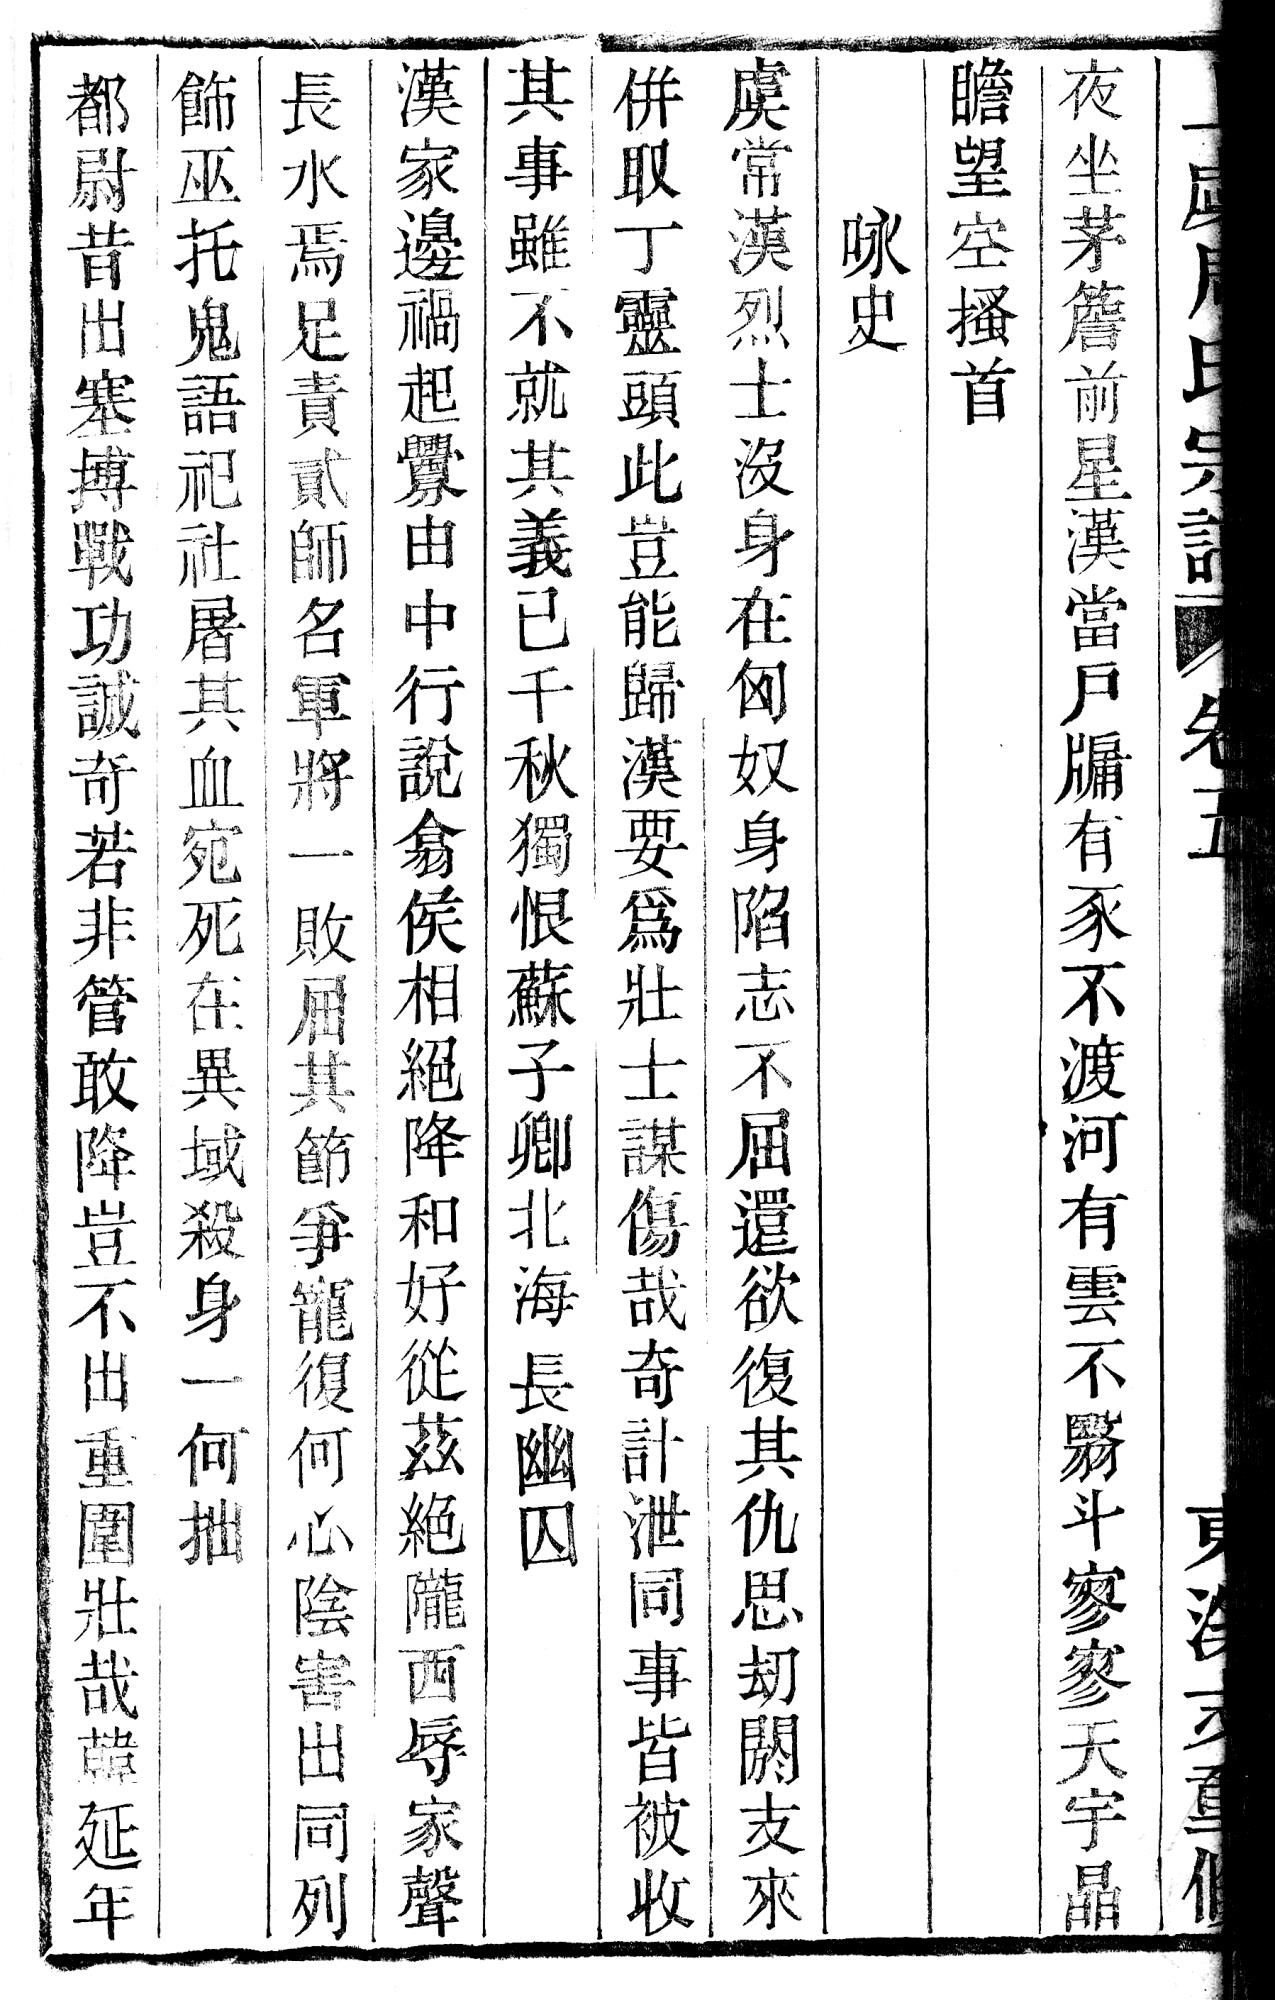 周氏宗譜 卷五
夜坐茅簷前星漢當戸牖有豕不渡河有雲不翳斗寥寥天宇晶
瞻望空搔首
咏史
虞常漢烈士沒身在匈奴身陷志不屈還欲復其仇思刧閼支來
併取丁靈頭此豈能歸漢要爲壯士謀傷哉奇計泄同事皆被收
其事雖不就其義已千秋獨恨蘇子卿北海長幽囚
漢家邊禍起釁由中行說翕侯相絕降和好從茲絕隴西辱家聲
長水焉足責貳師名軍將一敗屈其節爭寵復何心陰害出同列
飾巫托鬼語祀社屠其血宛死在異域殺身一何拙
都尉昔出塞搏戰功誠奇若非管敢降豈不出重圍壯哉韓延年